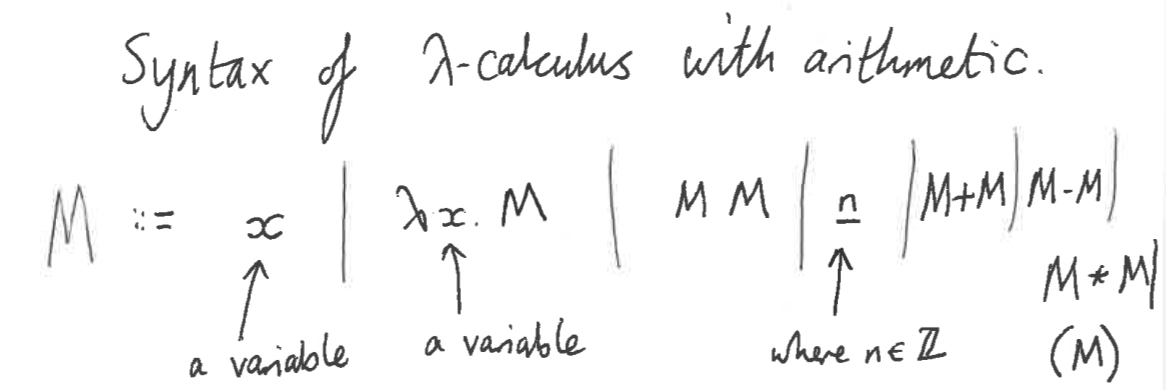 Syntax of λ-calculus with arithmetic.
M ::= x | λx. M | M M | n | M+M | M-M |
M * M |
(M)
a variable
a variable
where n ∈ ℤ